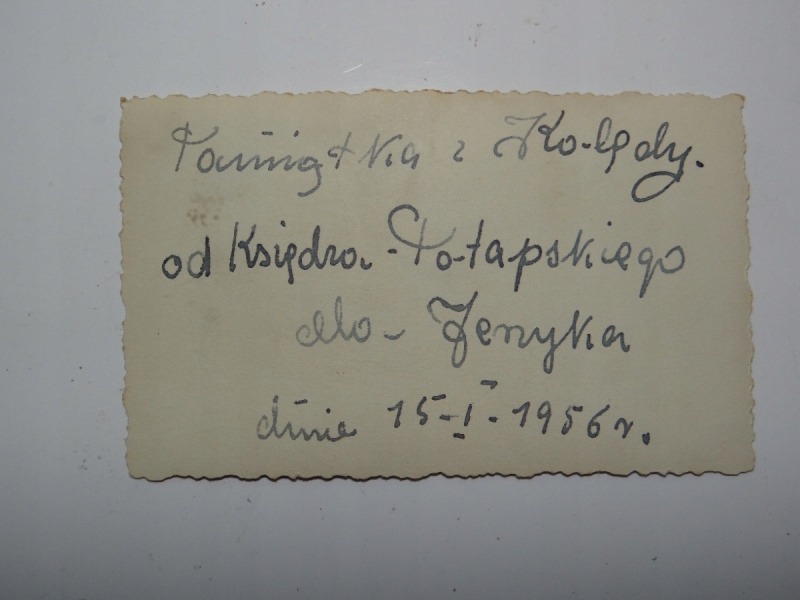 Pamiątka z Kolędy.
od Księdza Potapskiego
dla Jerzyka
dnia 15-I-1956 r.